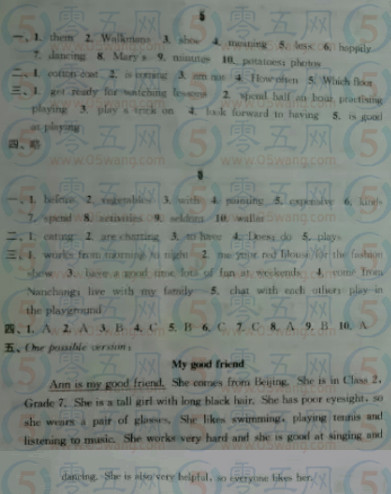 5
一、1. them 2. Walkmans 3. shoe 4. meaning 5. less 6. happily
7. dancing 8. Mary's 9. minutes 10. potatoes; photos
二、1. cotton coat 2. is coming 3. am not 4. How often 5. Which floor
三、1. get ready for watching lessons 2. spend half an hour practising
playing 3. play a trick on 4. look forward to having 5. is good
at playing
四、略
8
一、1. before 2. vegetables 3. with 4. painting 5. expensive 6. kinds
7. spend 8. activities 9. seldom 10. wallet
二、1. eating 2. are chatting 3. to have 4. Does; do 5. plays
三、1. works from morning to night 2. red blouse for the fashion
show 3. have a good time lots of fun at weekends 4. come from
Nanchang; live with my family 5. chat with each other; play in
the playground
四、1. A 2. A 3. B 4. C 5. B 6. C 7. C 8. A 9. B 10. A
五、One possible version:
My good friend
Ann is my good friend. She comes from Beijing. She is in Class 2,
Grade 7. She is a tall girl with long black hair. She has poor eyesight, so
she wears a pair of glasses. She likes swimming, playing tennis and
listening to music. She works very hard and she is good at singing and
dancing. She is also very helpful, so everyone likes her.
零五网
www.05wang.com